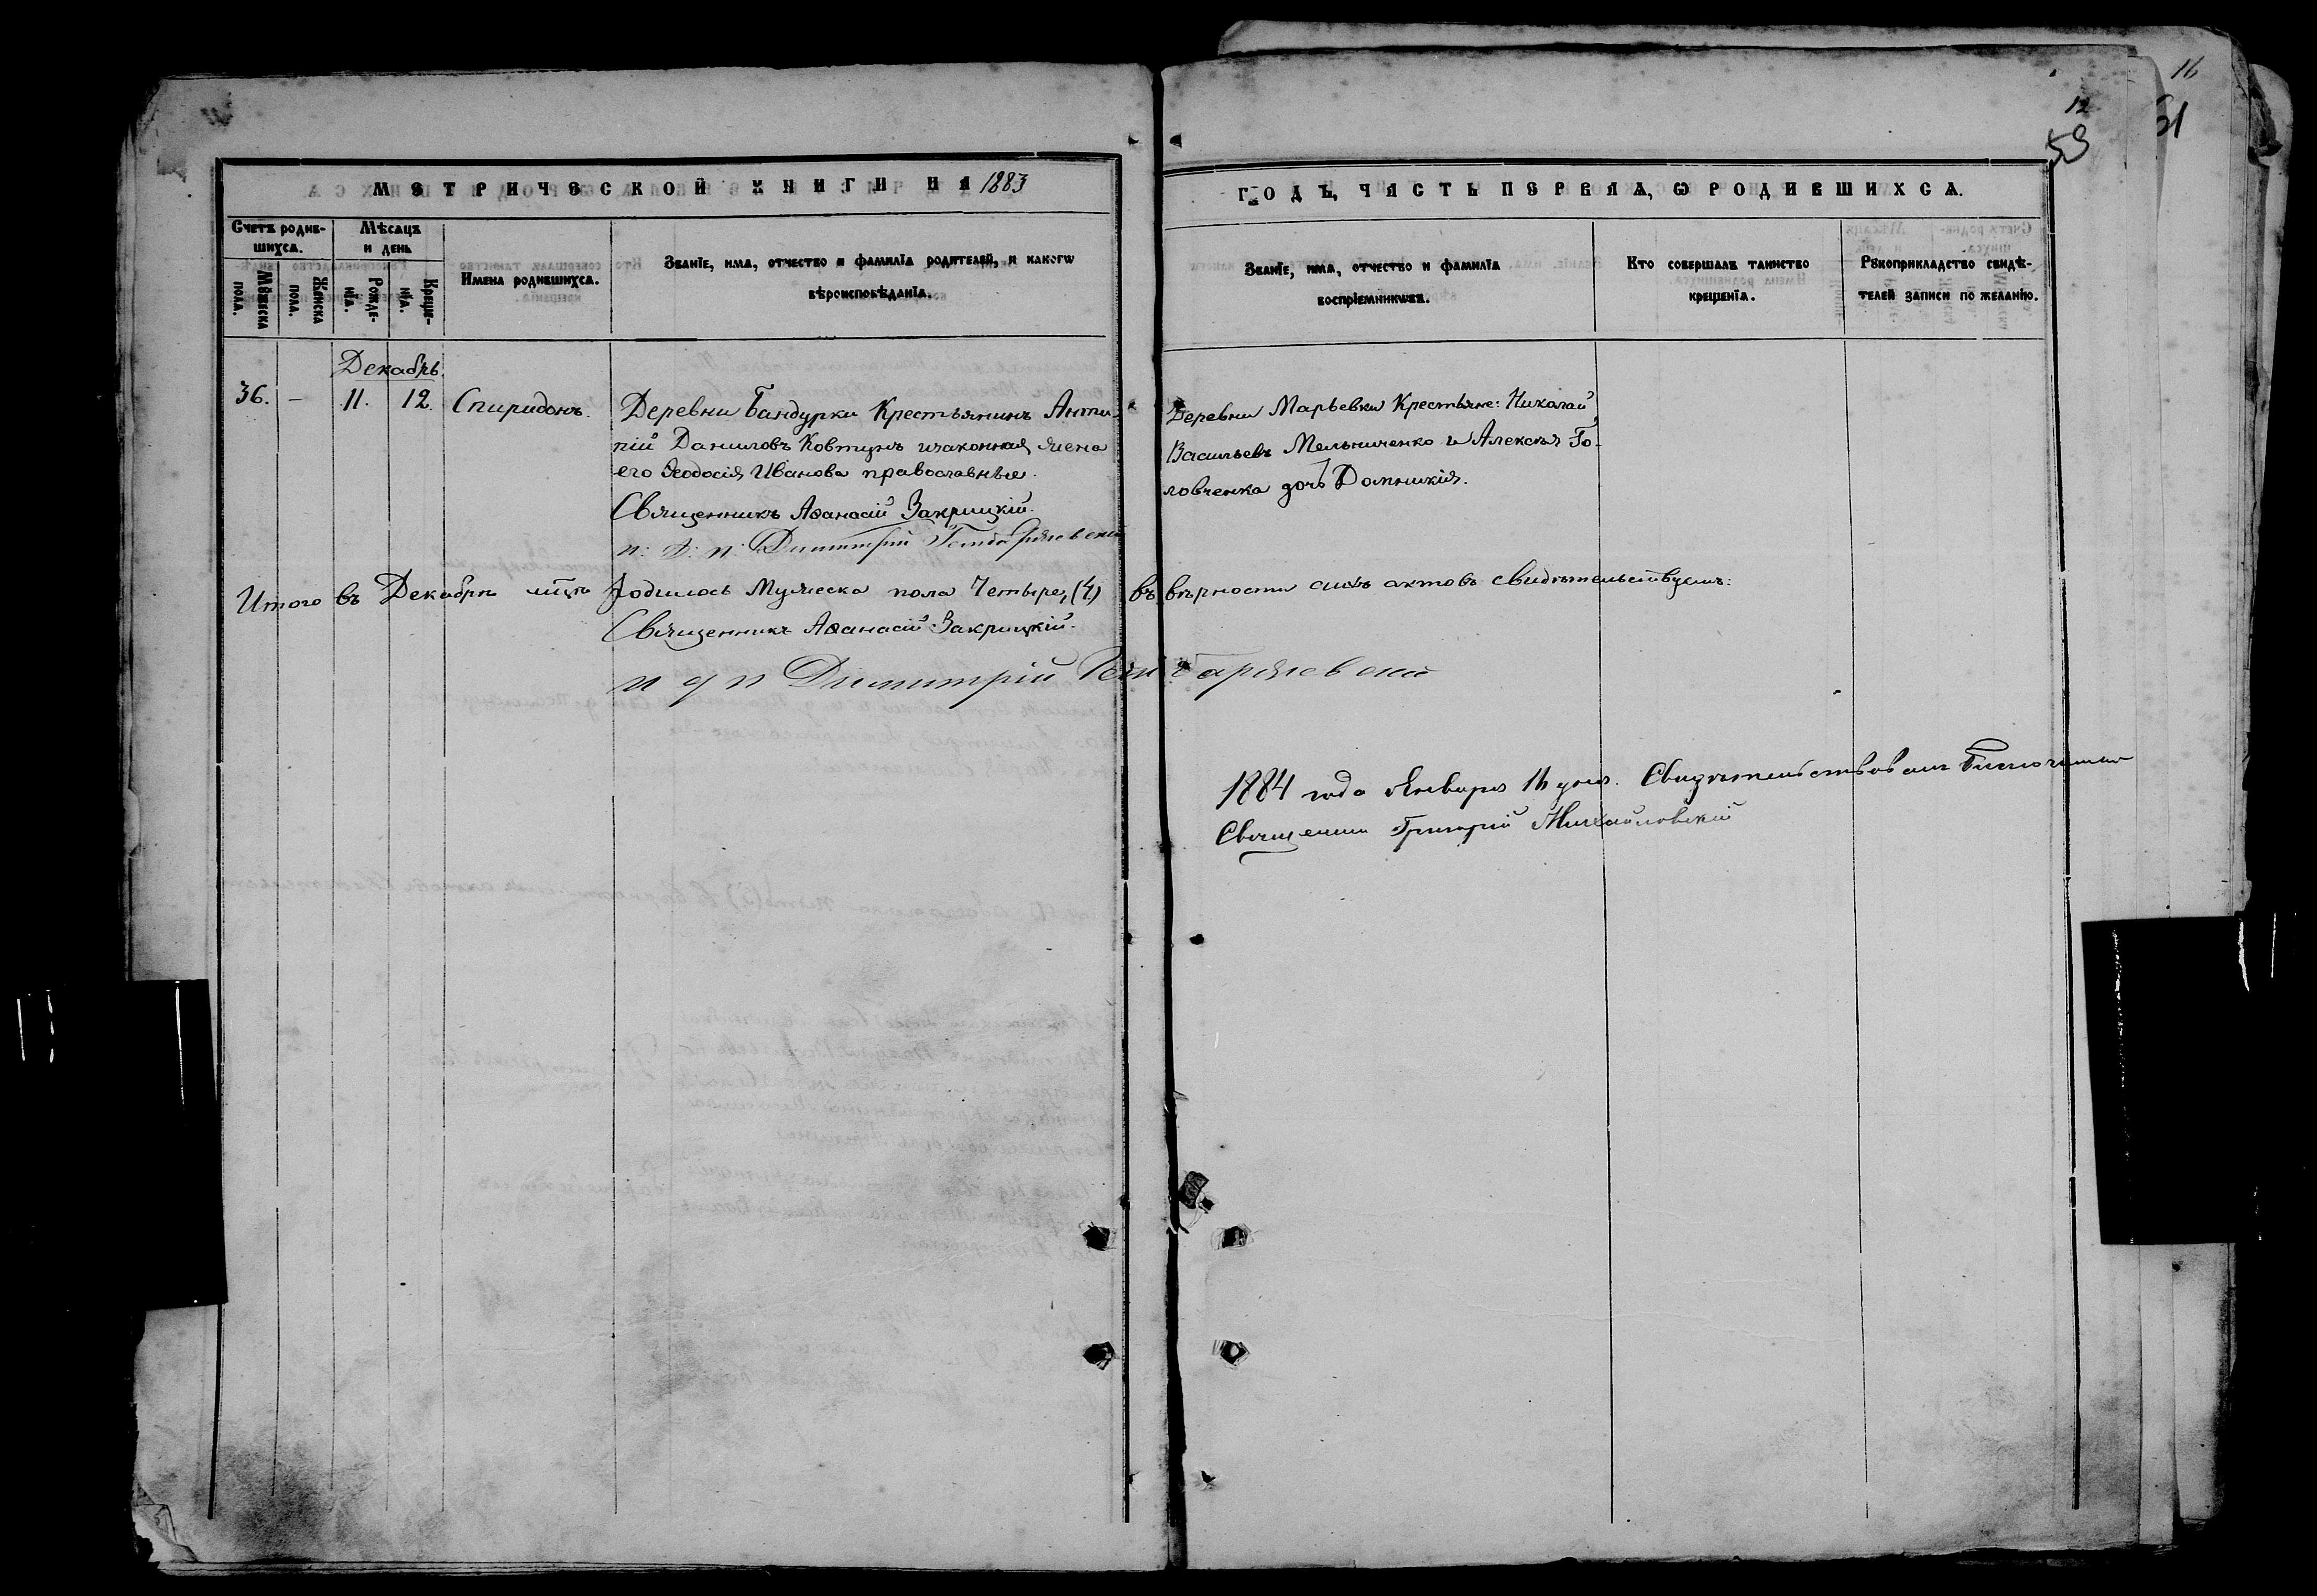 16
12
61
53
МЕТРИЧЕСКОЙ КНИГИ НА 1883
ГОДЪ, ЧАСТЬ ПЕРВАЯ, Ѡ РОДИВШИХСѦ.
Счетъ родив-
шихсѧ.
Мѣсѧцъ
и день
Мꙋжеска
пола.
Женска
пола.
Рожде-
нїѧ.
Креще-
нїѧ.
Имена родившихсѧ.
Званїе, имѧ, отчество и фамилїѧ родителей, и какогѡ
вѣроисповѣданїѧ.
Званїе, имѧ, отчество и фамилїѧ
воспрїемникѡвъ.
Кто совершалъ таинство
крещенїѧ.
Рꙋкоприкладство свидѣ-
телей записи по желанїю.
Декабрь.
36. – 11. 12. Спиридонъ.
Деревни Бандурки Крестьянинъ Анти-
пій Даниловъ Ковтунъ изаконная жена
его Ѳеодосія Иванова православные.
Священникъ Аѳанасій Закрицкій.
Деревни Марьевки Крестьяне: Николай
Васильевъ Мельниченко и Алексѣя Го-
ловченка дочь Домникія.
и. д. п. Димитрій
Итого въ Декабрѣ мѣцѣ родилось Мужеска пола Четыре, (4) въ вѣрности сихъ актовъ свидѣтельствуемъ:
Священникъ Аѳанасій Закрицкій.
и д п Димитрій
1884 года Января 16 дня. Свидѣтельствовалъ Благочинный
Священникъ Григорій Михайловскій